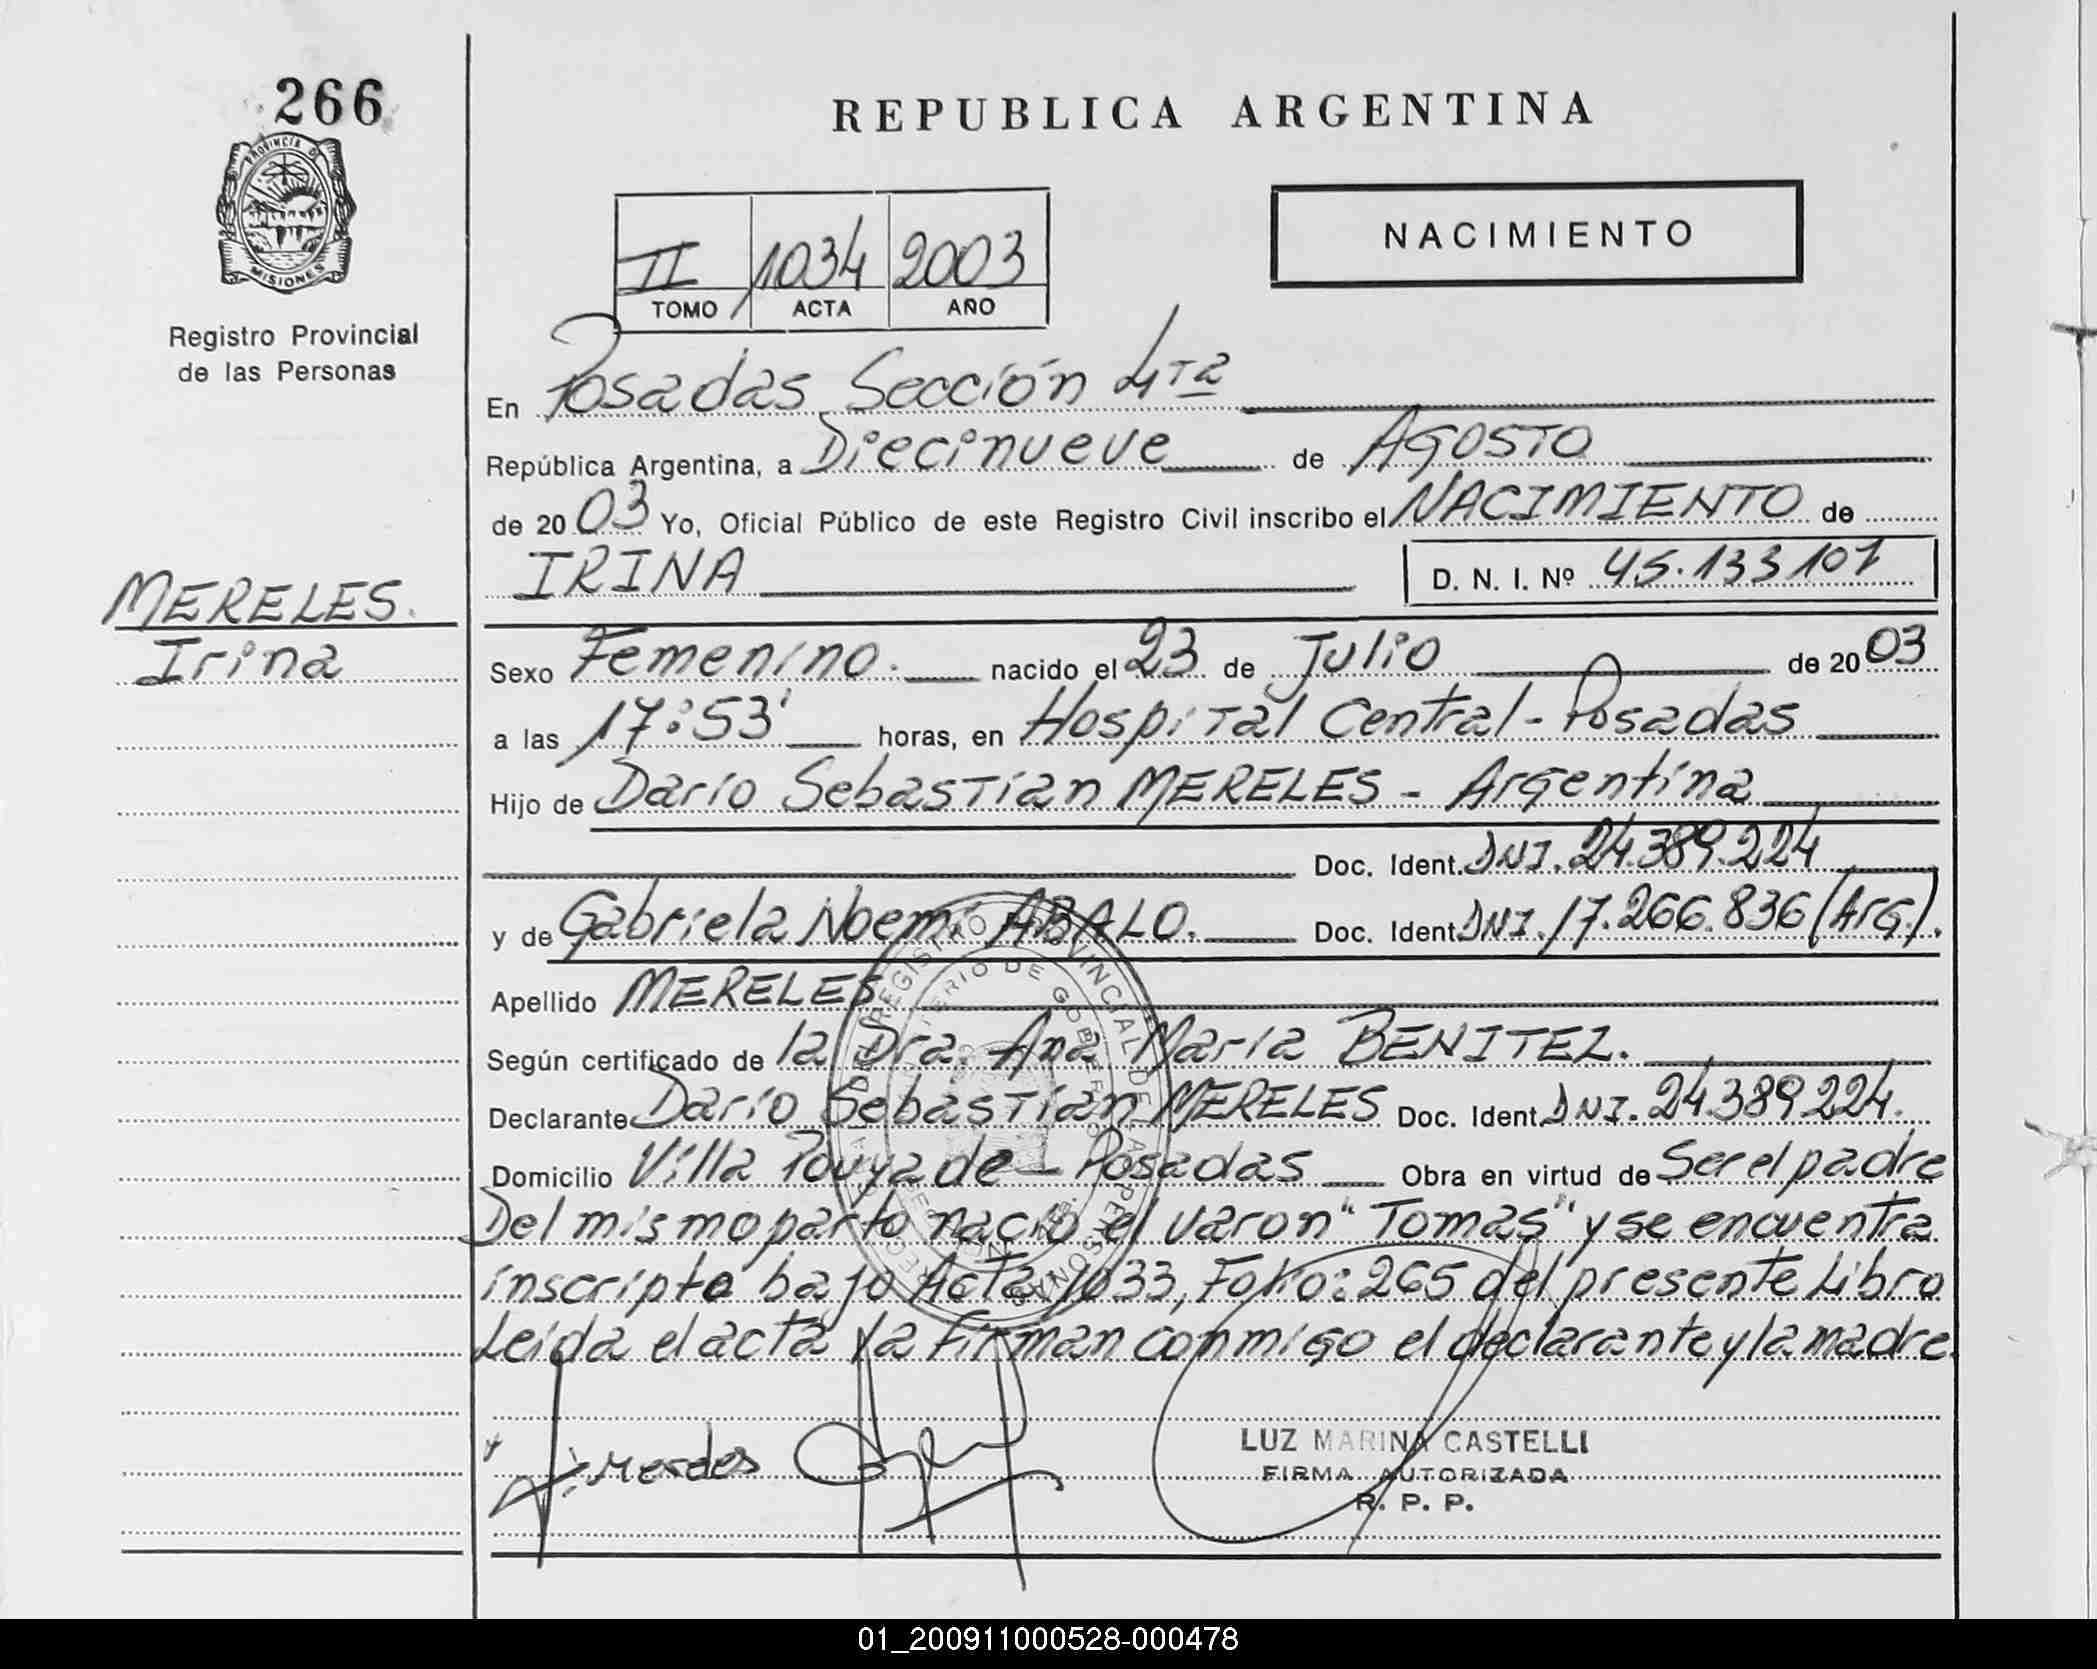 266
REPUBLICA ARGENTINA
PROVINCIA DE
MISIONES
II 1034 2003
TOMO ACTA AÑO
NACIMIENTO
Registro Provincial
de las Personas
En Posadas Sección 4ta
República Argentina, a Diecinueve de AGOSTO
de 2003 Yo, Oficial Público de este Registro Civil inscribo el NACIMIENTO de
IRINA D. N. I. Nº 45.133107
MERELES.
Irina
Sexo Femenino. nacido el 23 de Julio de 2003
a las 17:53' horas, en Hospital Central - Posadas
Hijo de Darío Sebastián MERELES - Argentina
Doc. Ident. DNI. 24.389.224
y de Gabriela Noemí ABALO. Doc. Ident. DNI. 17.266.836 (Arg.).
Apellido MERELES
Según certificado de la Dra. Ana María BENITEZ.
Declarante Darío Sebastián MERELES Doc. Ident. DNI. 24.389.224.
Domicilio Villa Pouyade - Posadas Obra en virtud de Ser el padre
Del mismo parto nació el varon "Tomas" y se encuentra
inscripto bajo Acta 1033, Folio: 265 del presente Libro
Leida el acta la firman conmigo el declarante y la madre.
LUZ MARINA CASTELLI
FIRMA AUTORIZADA
R. P. P.
01_200911000528-000478